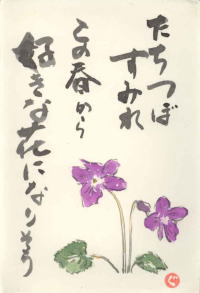 たちつぼ
すみれ
この春から
好きな花になりそう